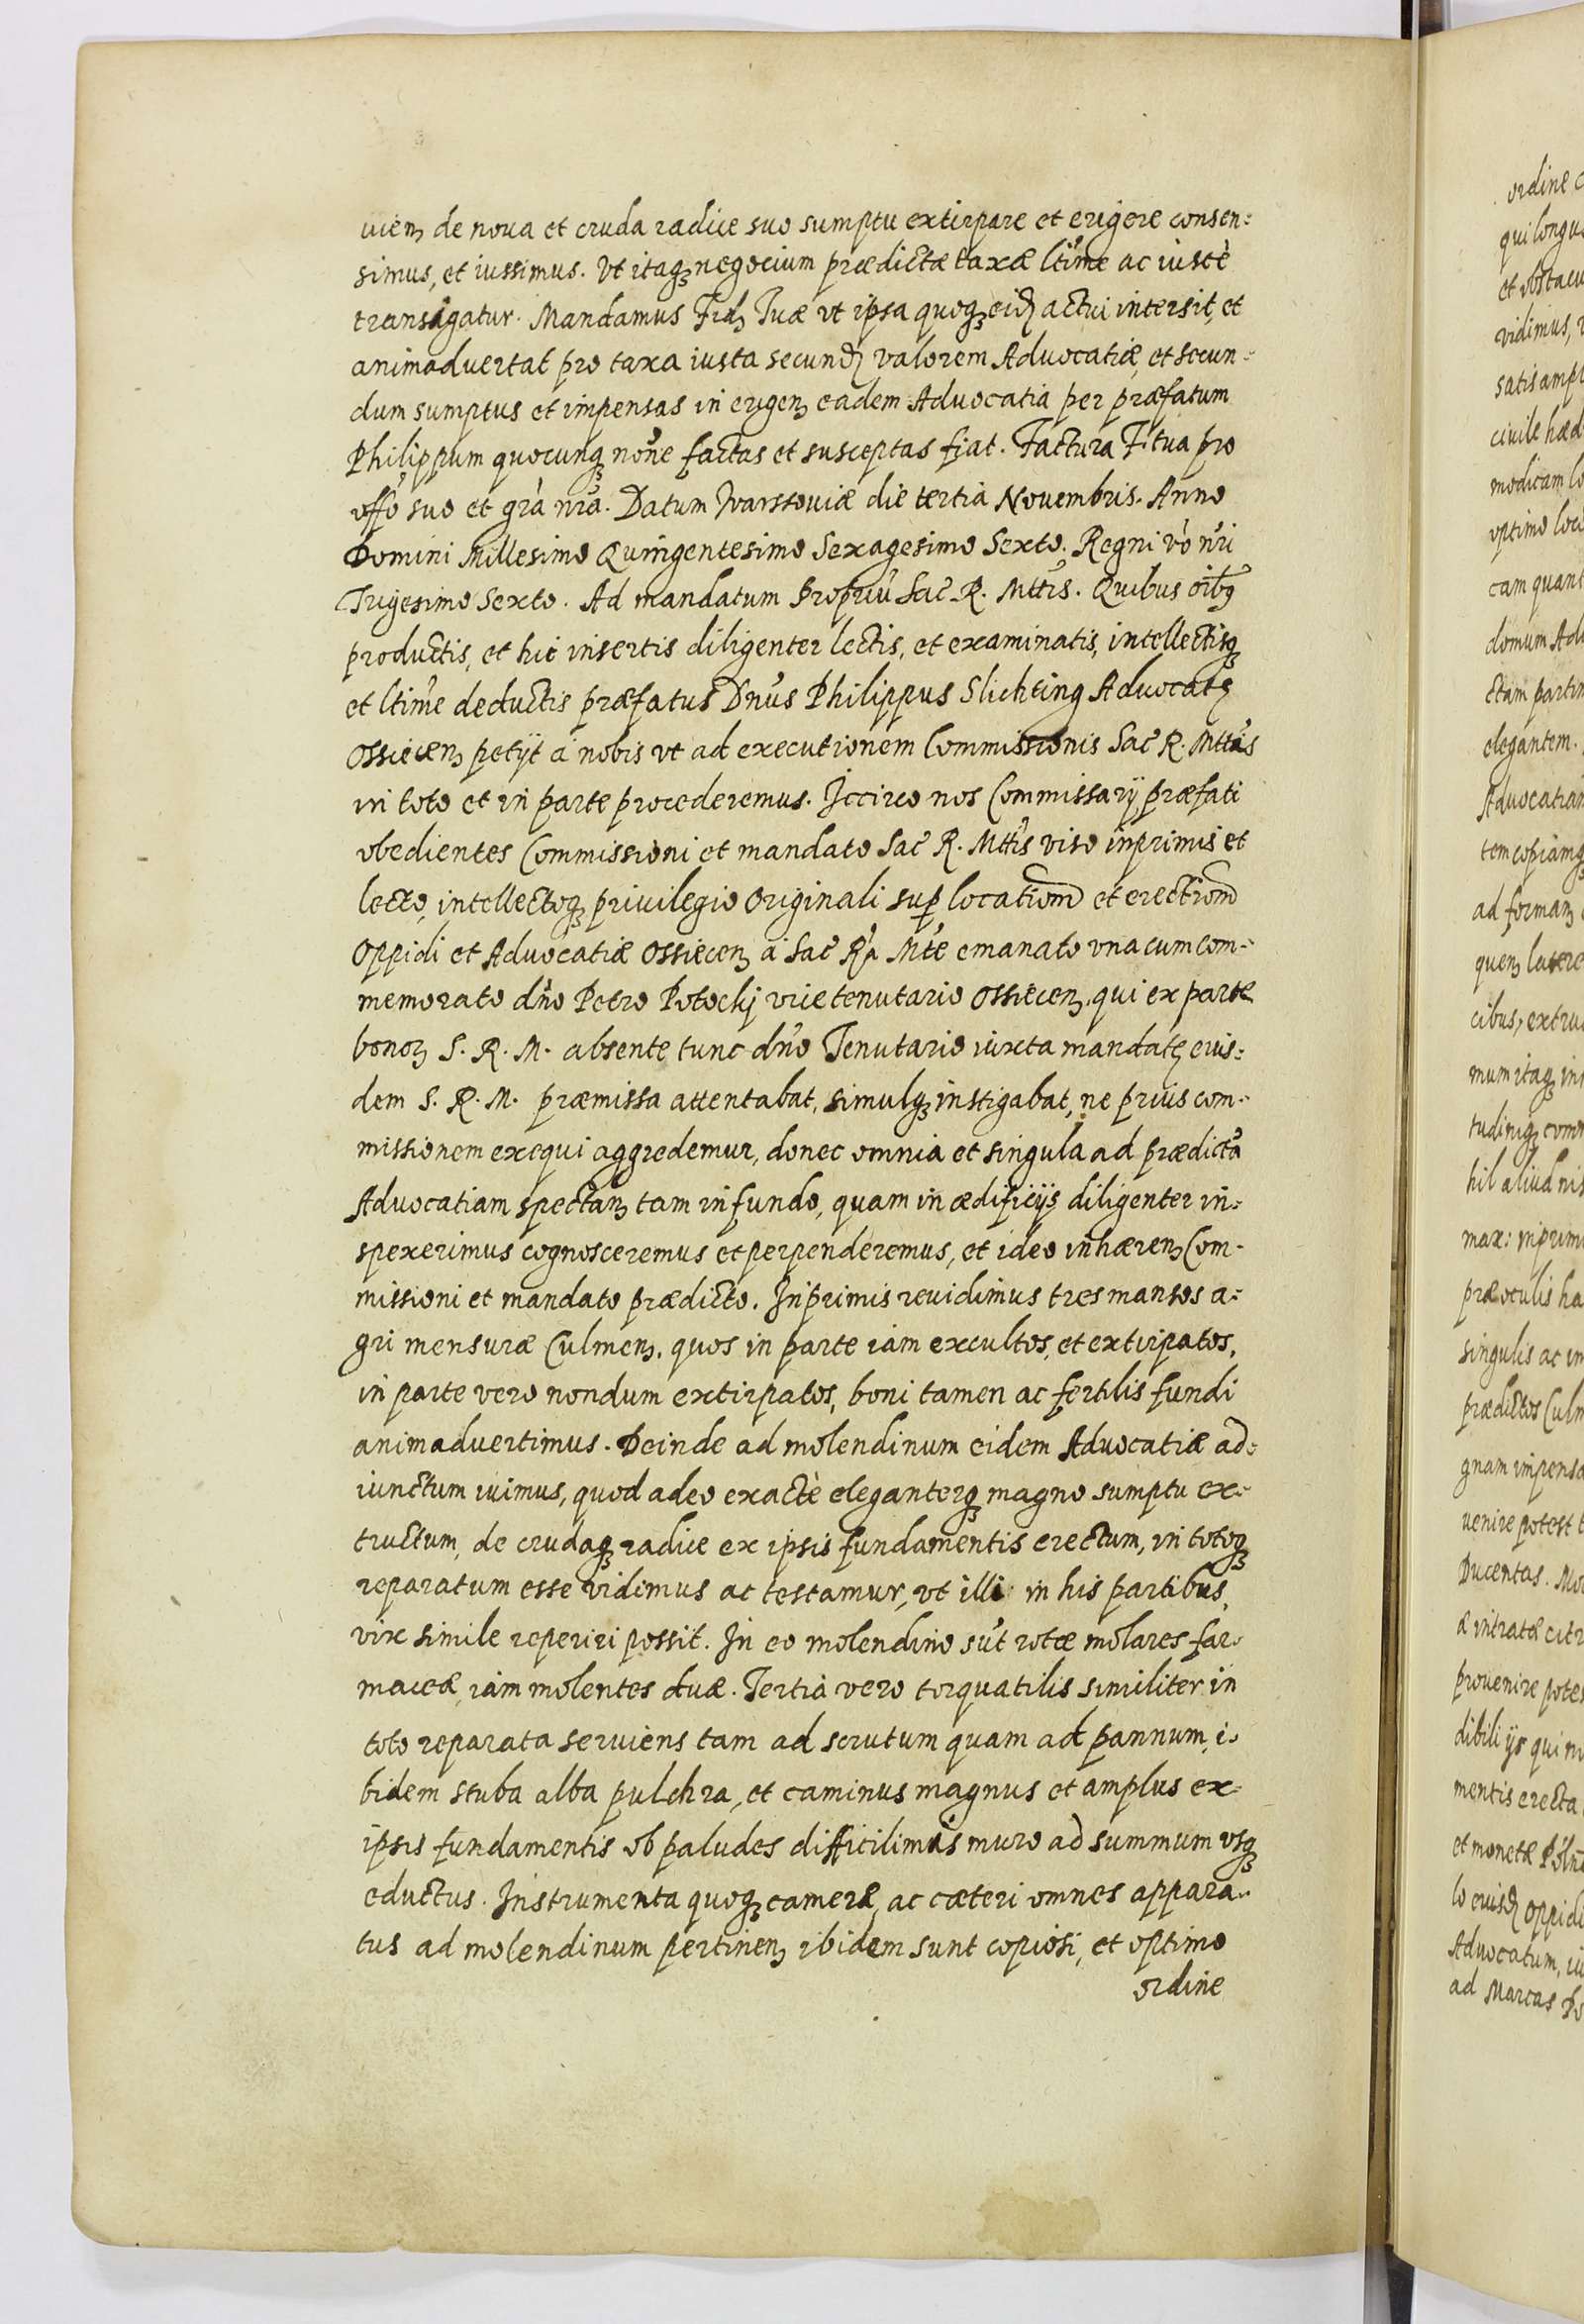 uień de noua et cruda radice suo sumptu extirpare et erigere consen:
simus, et iussimus. Vt itaqꝫ negocium prædictæ taxæ ltime ac iustè
transigatur. Mandamus Frdꝫ Tuæ vt ipsa quoqꝫ eidꝫ actui intersit, et
animaduertat pro taxa iusta secundꝫ valorem Aduocatiæ, et secun-
dum sumptus et impensas in erigenꝫ eadem Aduocatia per præfatum
Philippum quocunqꝫ noñe factas et susceptas fiat. Factura F. tua pro
offo suo et grà nrã. Datum Warssouiæ die tertia Nouembris. Anno
Domini Millesimo Quingentesimo Sexagesimo Sexto. Regni vò nri
Trigesimo Sexto. Ad mandatum propriũ Sac R. Mttis. Quibus oibꝫ
productis, et hic insertis diligenter lectis, et examinatis, intellectisqꝫ
et ltime deductis præfatus Dnus Philippus Slichting Aduocatꝫ
Ossiecenꝫ petijt à nobis vt ad executionem Commissionis Sac R. Mttis
in toto et in parte procederemus. Iccirco nos Commissarij præfati
obedientes Commissioni et mandato Sac R. Mttis viso inprimis et
lecto, intellectoqꝫ priuilegio Originali sup locationẽ et erectionẽ
Oppidi et Aduocatiæ Ossiecenꝫ à Sac Rꝫ Mte emanato vna cum com-
memorato dño Petro Potockj vicetenutario Ossiecenꝫ, qui ex parte
bonoꝫ S. R. M. absente tunc dño Tenutario iuxta mandatꝫ eius:
dem S. R. M. præmissa attentabat, simulqꝫ instigabat, ne prius com-
missionem exequi aggredemur, donec omnia et singula ad prædictã
Aduocatiam spectanꝫ tam in fundo, quam in ædificijs diligenter in-
spexerimus cognosceremus et perpenderemus, et ideo inhærenꝫ Com-
missioni et mandato prædicto. Inprimis reuidimus tres mansos a-
gri mensuræ Culmenꝫ. quos in parte iam excultos, et extirpatos,
in parte vero nondum extirpatos, boni tamen ac fertilis fundi
animaduertimus. Deinde ad molendinum eidem Aduocatiæ ad-
iunctum iuimus, quod adeo exactè eleganterqꝫ magno sumptu ex-
tructum, de crudaqꝫ radice ex ipsis fundamentis erectum, in totoqꝫ
reparatum esse vidimus ac testamur, vt illi in his partibus,
vix simile reperiri possit. In eo molendino sũt rotæ molares far-
maceæ iam molentes duæ. Tertia vero torquatilis similiter in
toto reparata seruiens tam ad scrutum quam ad pannum, i-
bidem stuba alba pulchra, et caminus magnus et amplus ex-
ipsis fundamentis ob paludes difficilimis muro ad summum vsqꝫ
eductus. Instrumenta quoqꝫ cameræ, ac cæteri omnes appara-
tus ad molendinum pertinenꝫ ibidem sunt copiosi, et optimo
ordine
ordine
qui longu
et obstacu
vidimus,
satis ampl
ciuile hæd
modicam lo
optimo loc
cam quant
domum Adu
ctam partin
elegantem.
Aduocatiam
tem copiamqꝫ
ad formanꝫ
quenꝫ latere
cibus, extru
mum itaqꝫ in
tudinqꝫ com
hil aliud nis
max: inprim
præ oculis ha
singulis ac in
prædictos Culm
gnam impensa
uenire potest
Ducentas. Mo
æ intratæ citr
prouenire potes
dibili ijs qui
mentis erecta
et monetæ Poln
lo eiusdꝫ oppidi
Aduocatum, iu
ad Marcas